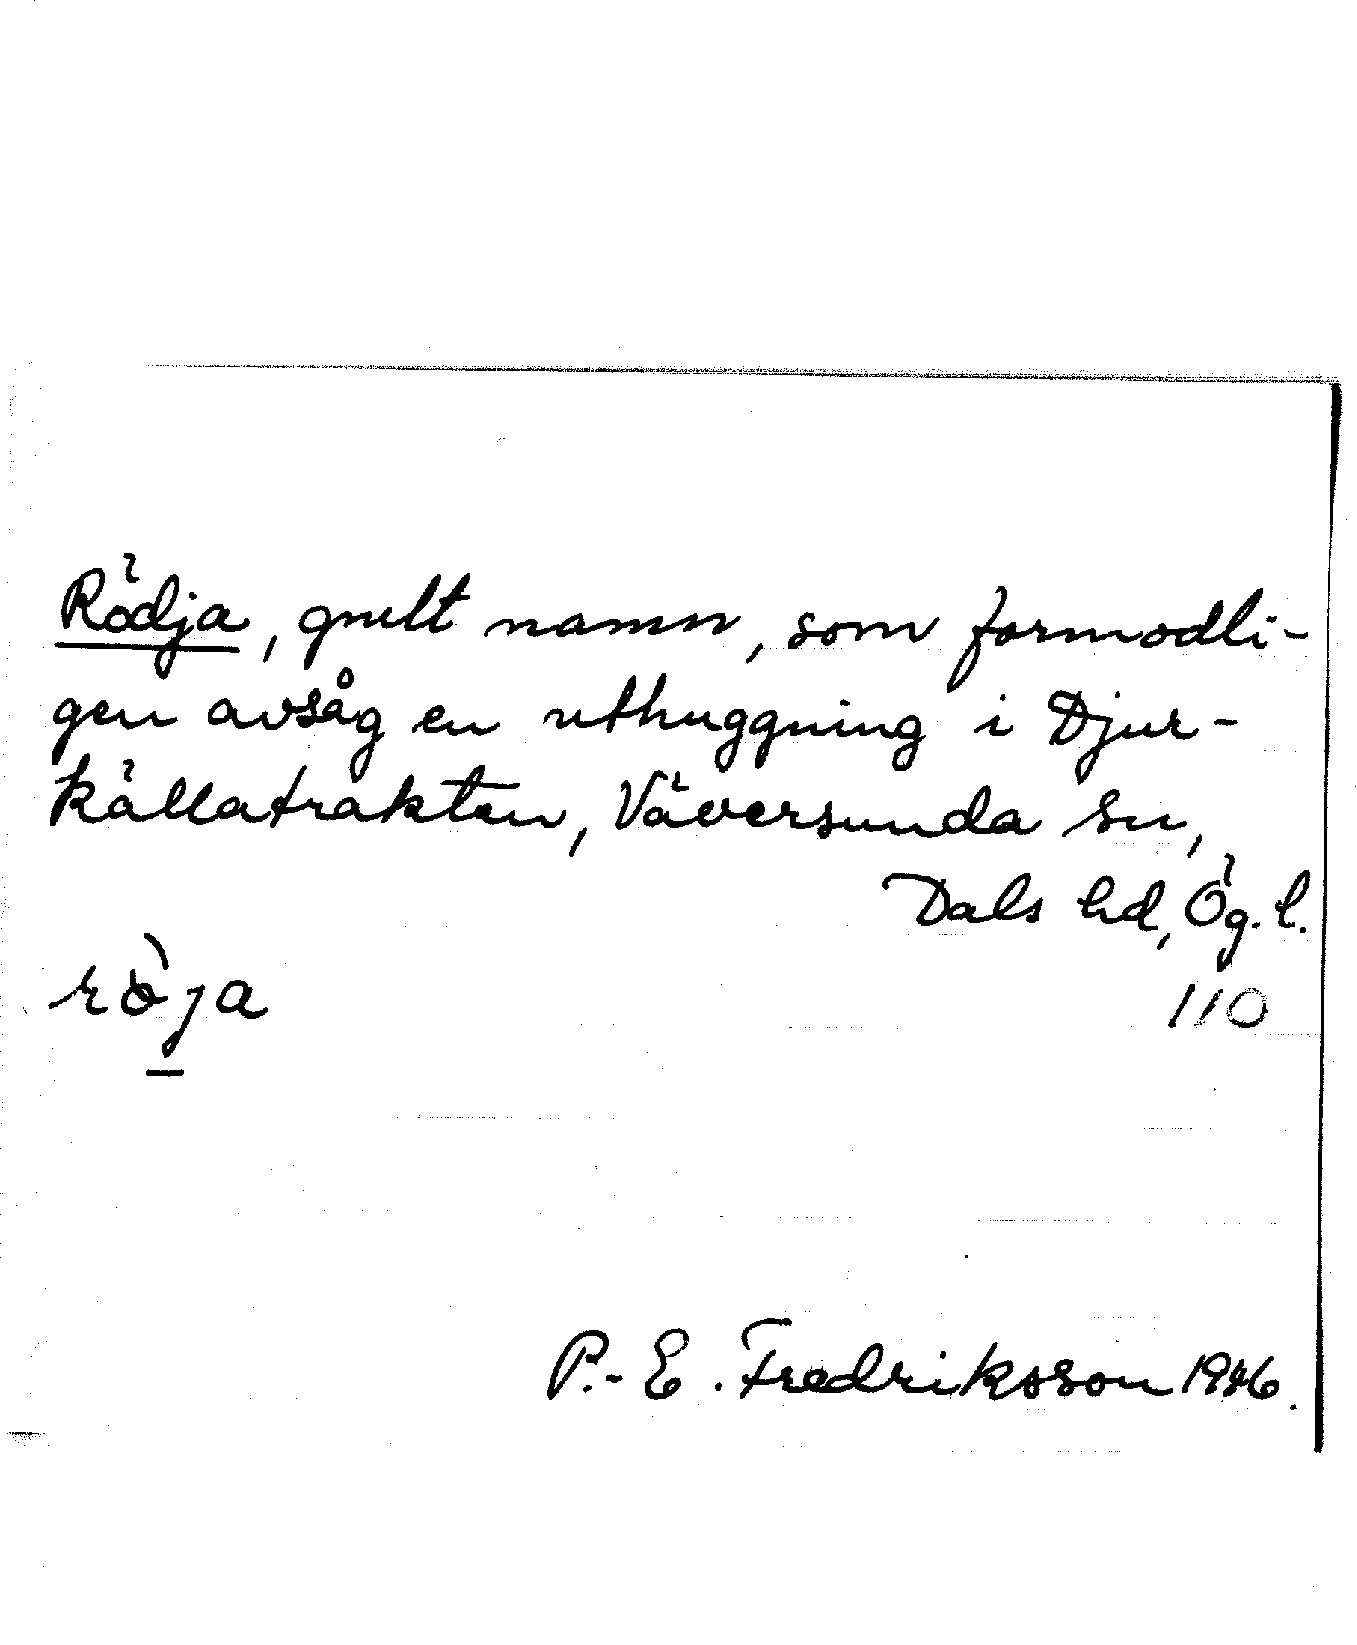 Rödja, gnelt namn, som formodli-
gen avsåg en uthuggning i Djur-
källatrakten, Väversunda sn,
Dals hd, Ög. l.
röja
110
P.-E. Fredriksson 1946.